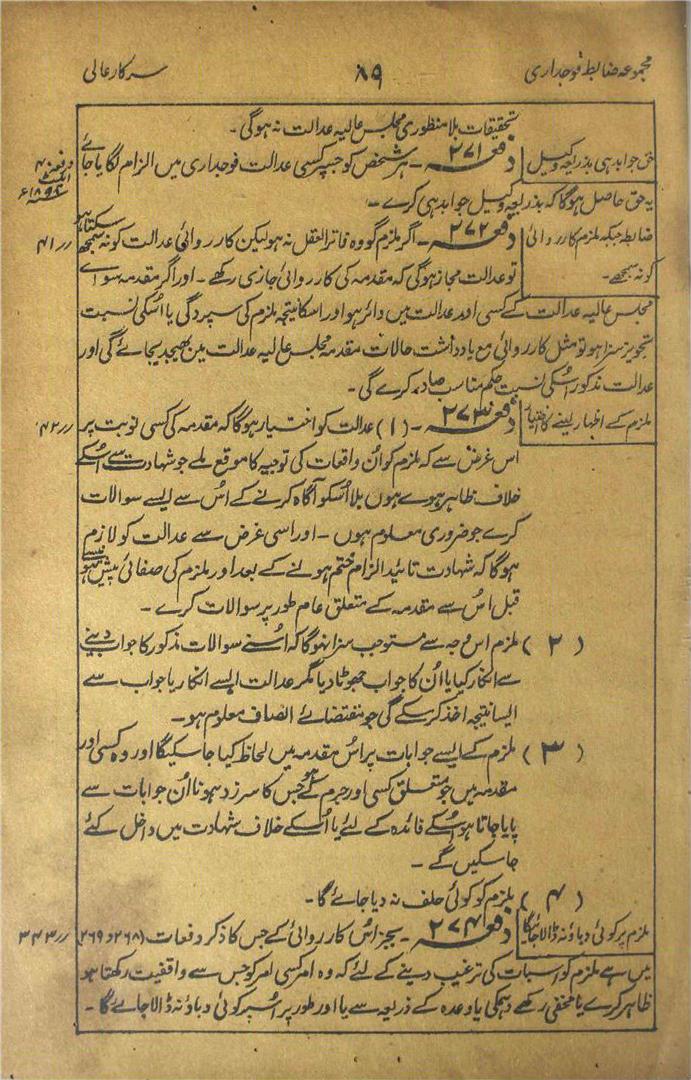 مجموعہ ضابطہ فوجداری
۸۹
سرکار عالی
تحقیقات بلا منظوری مجلس عالیہ عدالت نہ ہوگی۔
حق جوابدہی بذریعہ وکیل
دفعہ ۲۷۱ ۔ ہر شخص کو جسپر کسی عدالت فوجداری میں الزام لگایا جائے
یہ حق حاصل ہوگا کہ بذریعہ وکیل جوابدہی کرے۔
ضابطہ جبکہ ملزم کارروائی
کو نہ سمجھے۔
دفعہ ۲۷۲ ۔ اگر ملزم گو وہ فاتر العقل نہ ہو لیکن کارروائی عدالت کو نہ سمجھ سکتا ہو
۴۱ //
تو عدالت مجاز ہوگی کہ مقدمہ کی کارروائی جاری رکھے۔ اور اگر مقدمہ سوائے
مجلس عالیہ عدالت کے کسی اور عدالت میں دائر ہو اور اسکا نتیجہ ملزم کی سپردگی یا اُسکی نسبت
تجویز سزا ہو تو مثل کارروائی مع یادداشت حالات مقدمہ مجلس عالیہ عدالت میں بھیجدیجائے گی اور
عدالت مذکور اُسکی نسبت حکم مناسب صادر کرے گی۔
ملزم کے اظہار لینے کا اختیار
دفعہ ۲۷۳ ۔ (۱) عدالت کو اختیار ہوگا کہ مقدمہ کی کسی نوبت پر
۴۲ //
اس غرض سے کہ ملزم کو اُن واقعات کی توجیہ کا موقع ملے جو شہادت سے اُسکے
خلاف ظاہر ہوے ہوں بلا اُسکو آگاہ کرنے کے اُس سے ایسے سوالات
کرے جو ضروری معلوم ہوں ۔ اور اسی غرض سے عدالت کو لازم
ہوگا کہ شہادت تائید الزام ختم ہونے کے بعد اور ملزم کی صفائی پیش ہونیسے
قبل اُس سے مقدمہ کے متعلق عام طور پر سوالات کرے۔
(۲) ملزم اس وجہ سے مستوجب سزا نہوگا کہ اُسنے سوالات مذکور کا جواب دینے
سے انکار کیا یا اُن کا جواب جھوٹا دیا مگر عدالت ایسے انکار یا جواب سے
ایسا نتیجہ اخذ کر سکے گی جو مقتضائے انصاف معلوم ہو۔
(۳) ملزم کے ایسے جوابات پر اُس مقدمہ میں لحاظ کیا جا سکیگا اور وہ کسی اور
مقدمہ میں جو متعلق کسی اور جرم کے ہو جس کا سرزد ہونا اُن جوابات سے
پایا جاتا ہو اُسکے فائدہ کے لئے یا اُسکے خلاف شہادت میں داخل کئے
جا سکیں گے۔
(۴) ملزم کو کوئی حلف نہ دیا جائے گا۔
ملزم پر کوئی دباؤ نہ ڈالا جائیگا
دفعہ ۲۷۴ ۔ بجز اُس کارروائی کے جس کا ذکر دفعات (۲۶۸ و ۲۶۹)
۳۴۳ //
میں ہے ملزم کو اسبات کی ترغیب دینے کے لئے کہ وہ امر کسی امر کو جس سے واقفیت رکھتا ہو
ظاہر کرے یا مخفی رکھے دھمکی یا وعدہ کے ذریعہ سے یا اور طور پر اُسپر کوئی دباؤ نہ ڈالا جائے گا۔